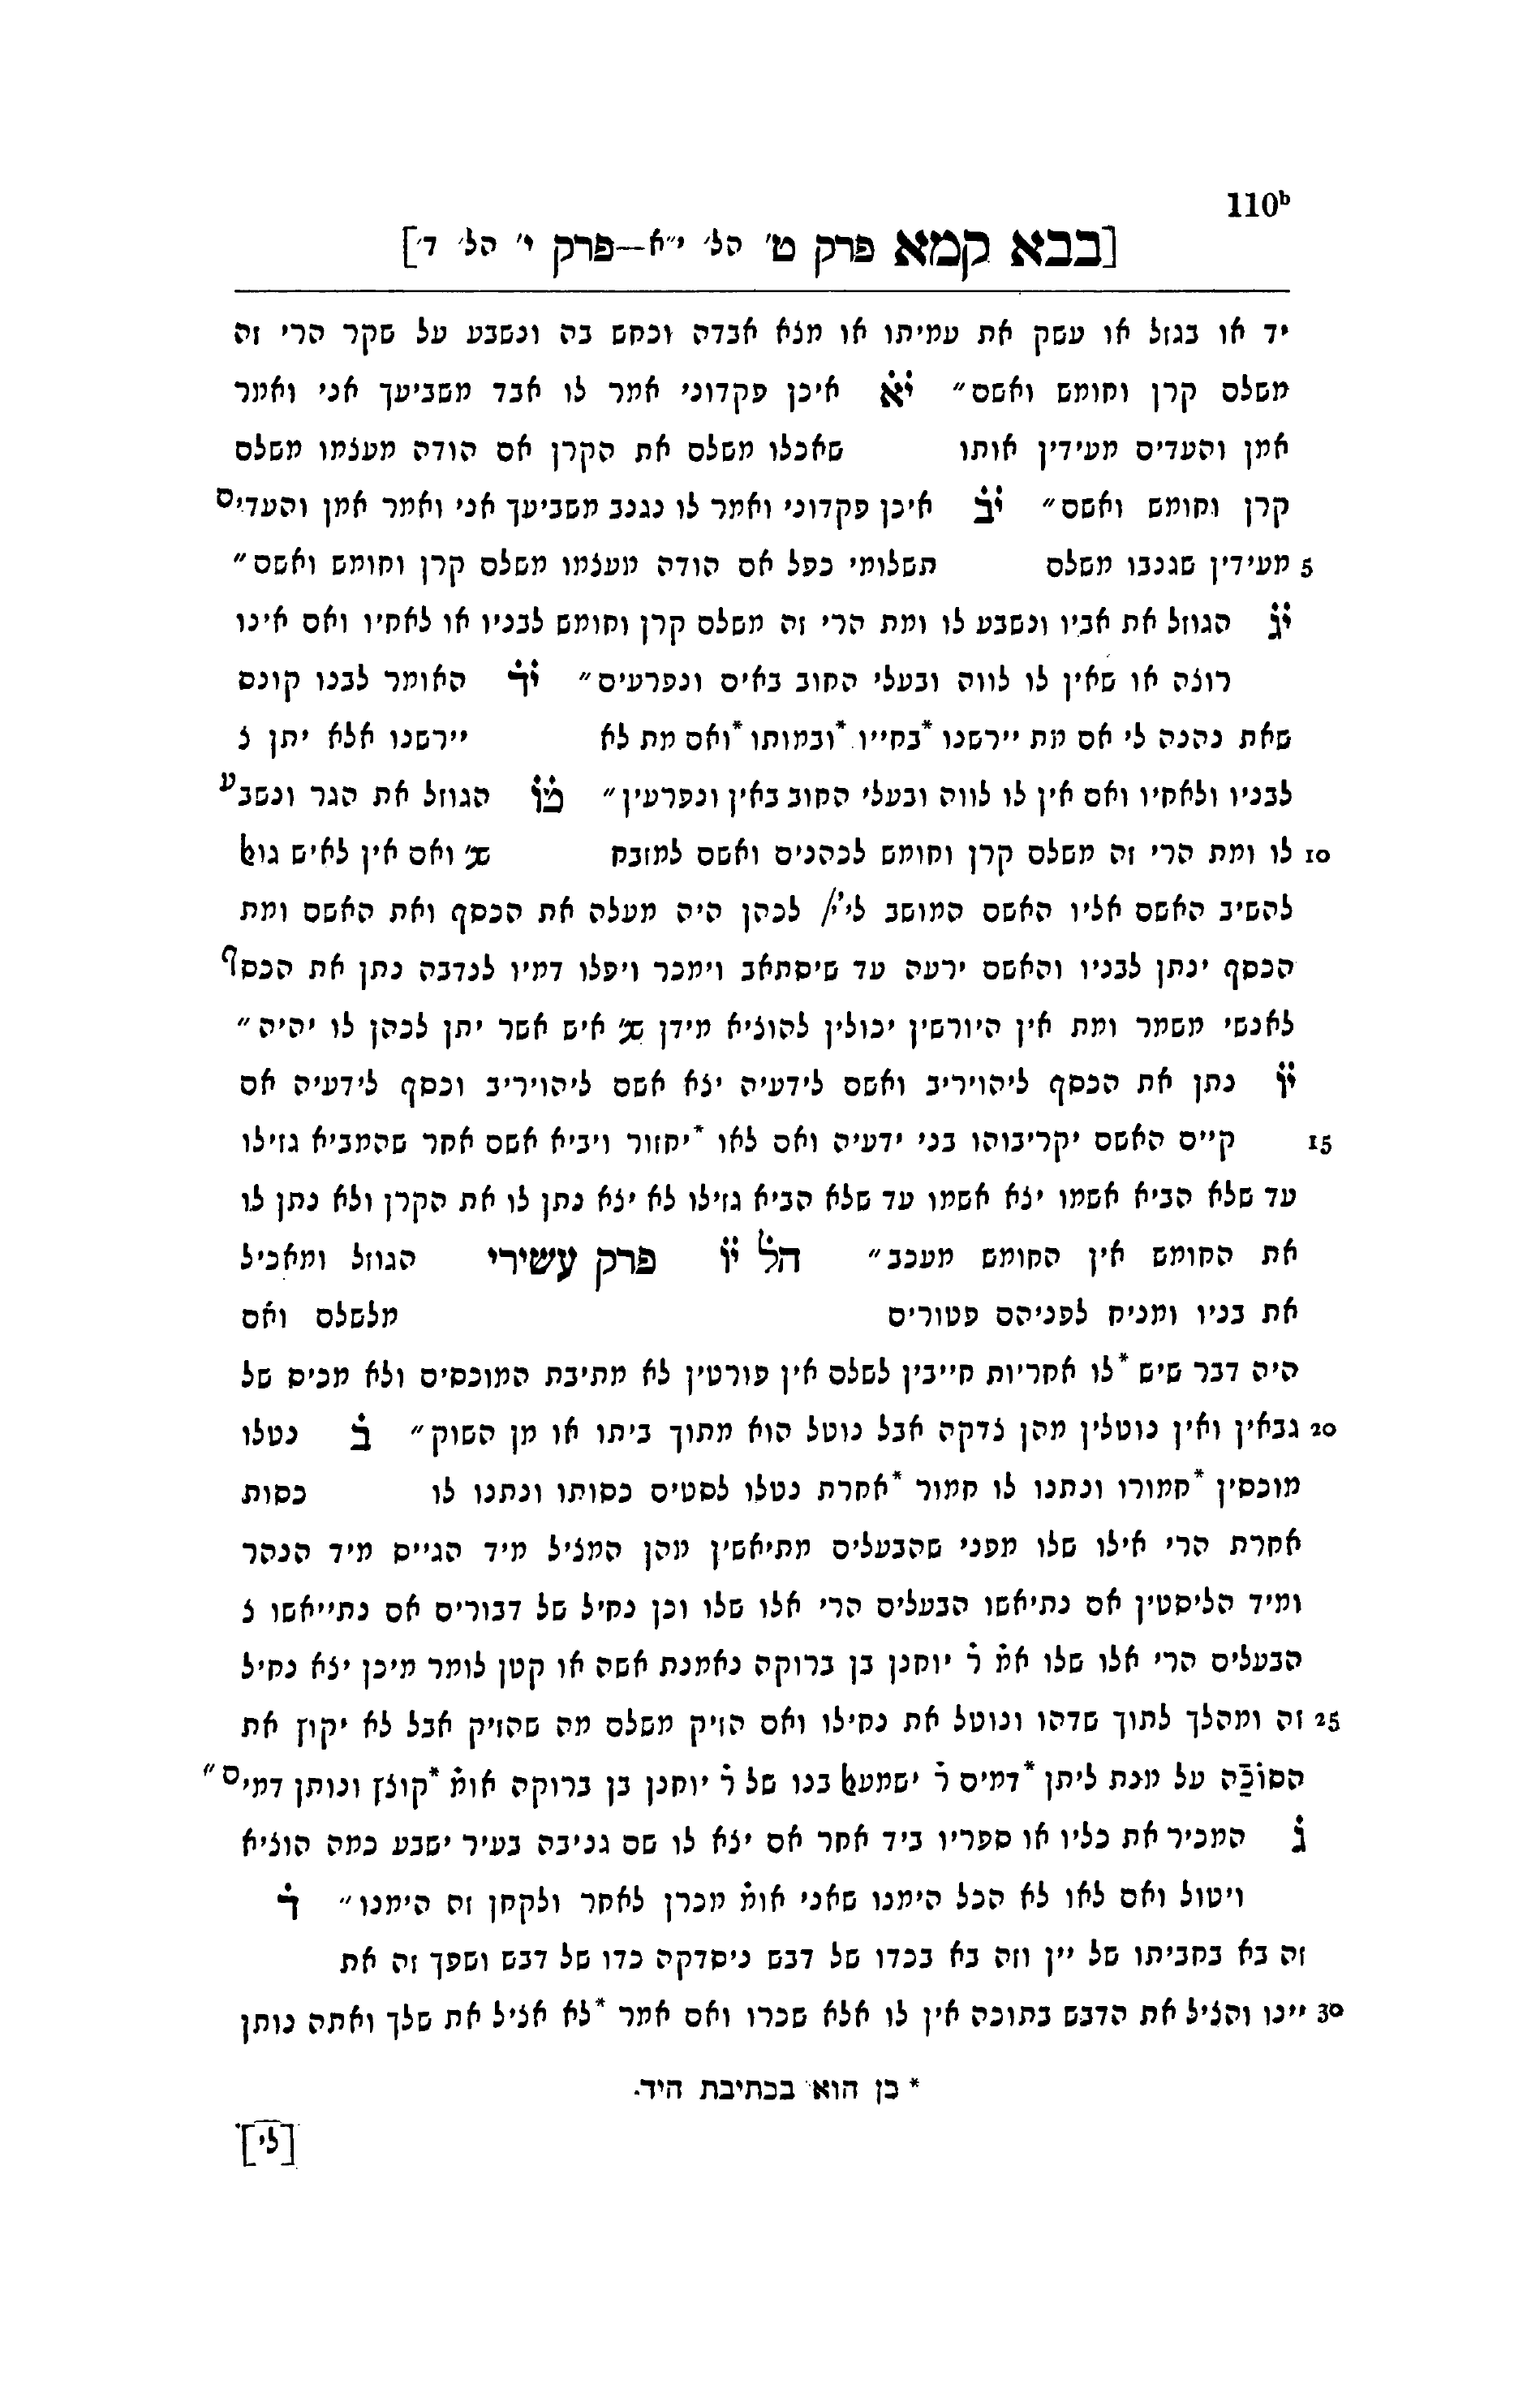 110ᵇ
[בבא קמא פרק ט׳ הל׳ י״א—פרק י׳ הל׳ ד׳]
יד או בגזל או עשק את עמיתו או מצא אבדה וכחש בה ונשבע על שקר הרי זה
משלם קרן וחומש ואשם״ יא איכן פקדוני אמר לו אבד משביעך אני ואמר
אמן והעדים מעידין אותו שאכלו משלם את הקרן אם הודה מעצמו משלם
קרן וחומש ואשם״ יב איכן פקדוני ואמר לו נגנב משביעך אני ואמר אמן והעדים
5 מעידין שגנבו משלם תשלומי כפל אם הודה מעצמו משלם קרן וחומש ואשם״
יג הגוזל את אביו ונשבע לו ומת הרי זה משלם קרן וחומש לבניו או לאחיו ואם אינו
רוצה או שאין לו לווה ובעלי החוב באים ונפרעים״ יד האומר לבנו קונם
שאת נהנה לי אם מת יירשנו *בחייו *ובמותו *ואם מת לא יירשנו אלא יתן צ
לבניו ולאחיו ואם אין לו לווה ובעלי החוב באין ונפרעין״ טו הגוזל את הגר ונשבע
10 לו ומת הרי זה משלם קרן וחומש לכהנים ואשם למזבח שנ׳ ואם אין לאיש גואל
להשיב האשם אליו האשם המושב לי״י לכהן היה מעלה את הכסף ואת האשם ומת
הכסף ינתן לבניו והאשם ירעה עד שיסתאב וימכר ויפלו דמיו לנדבה נתן את הכסף
לאנשי משמר ומת אין היורשין יכולין להוציא מידן שנ׳ איש אשר יתן לכהן לו יהיה״
יו נתן את הכסף ליהויריב ואשם לידעיה יצא אשם ליהויריב וכסף לידעיה אם
15 קיים האשם יקריבוהו בני ידעיה ואם לאו *יחזור ויביא אשם אחר שהמביא גזילו
עד שלא הביא אשמו יצא אשמו עד שלא הביא גזילו לא יצא נתן לו את הקרן ולא נתן לו
את החומש אין החומש מעכב״ הל יו פרק עשירי הגוזל ומאכיל
את בניו ומניח לפניהם פטורים מלשלם ואם
היה דבר שיש *לו אחריות חייבין לשלם אין פורטין לא מתיבת המוכסים ולא מכיס של
20 גבאין ואין נוטלין מהן צדקה אבל נוטל הוא מתוך ביתו או מן השוק״ ב נטלו
מוכסין *חמורו ונתנו לו חמור *אחרת נטלו לסטים כסותו ונתנו לו כסות
אחרת הרי אילו שלו מפני שהבעלים מתיאשין מהן המציל מיד הגייס מיד הנהר
ומיד הליסטין אם נתיאשו הבעלים הרי אלו שלו וכן נחיל של דבורים אם נתייאשו צ
הבעלים הרי אלו שלו אמ ר יוחנן בן ברוקה נאמנת אשה או קטן לומר מיכן יצא נחיל
25 זה ומהלך לתוך שדהו ונוטל את נחילו ואם הזיק משלם מה שהזיק אבל לא יקוץ את
הסוכה על מנת ליתן *דמים ר ישמעאל בנו של ר יוחנן בן ברוקה אומ *קוצץ ונותן דמים״
ג המכיר את כליו או ספריו ביד אחר אם יצא לו שם גניבה בעיר ישבע כמה הוציא
ויטול ואם לאו לא הכל הימנו שאני אומ מכרן לאחר ולקחן זה הימנו״ ד
זה בא בחביתו של יין וזה בא בכדו של דבש ניסדקה כדו של דבש ושפך זה את
30 יינו והציל את הדבש בתוכה אין לו אלא שכרו ואם אמר *לא אציל את שלך ואתה נותן
* כן הוא בכתיבת היד.
[לי]